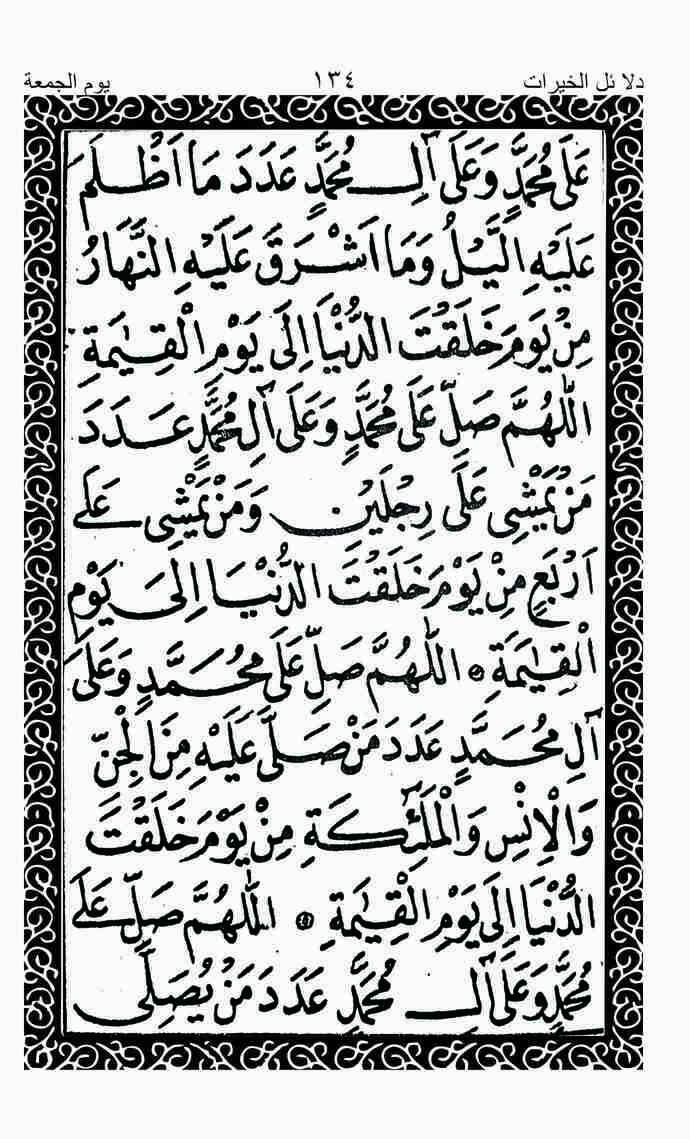 دلائل الخيرات ١٣٤ يوم الجمعة
عَلَى مُحَمَّدٍ وَعَلَى آلِ مُحَمَّدٍ عَدَدَ مَا اَظْلَمَ
عَلَيْهِ الَّيْلُ وَمَا اَشْرَقَ عَلَيْهِ النَّهَارُ
مِنْ يَوْمَ خَلَقْتَ الدُّنْيَا اِلَى يَوْمِ الْقِيٰمَةِ
اَللّٰهُمَّ صَلِّ عَلَى مُحَمَّدٍ وَعَلَى آلِ مُحَمَّدٍ عَدَدَ
مَنْ يَمْشِى عَلَى رِجْلَيْنِ وَمَنْ يَمْشِى عَلَى
اَرْبَعٍ مِنْ يَوْمَ خَلَقْتَ الدُّنْيَا اِلَى يَوْمِ
الْقِيٰمَةِ ۞ اَللّٰهُمَّ صَلِّ عَلَى مُحَمَّدٍ وَعَلَى
آلِ مُحَمَّدٍ عَدَدَ مَنْ صَلَّى عَلَيْهِ مِنَ الْجِنِّ
وَالْاِنْسِ وَالْمَلٰٓئِكَةِ مِنْ يَوْمَ خَلَقْتَ
الدُّنْيَا اِلَى يَوْمِ الْقِيٰمَةِ ۞ اَللّٰهُمَّ صَلِّ عَلَى
مُحَمَّدٍ وَعَلَى آلِ مُحَمَّدٍ عَدَدَ مَنْ يُصَلِّى